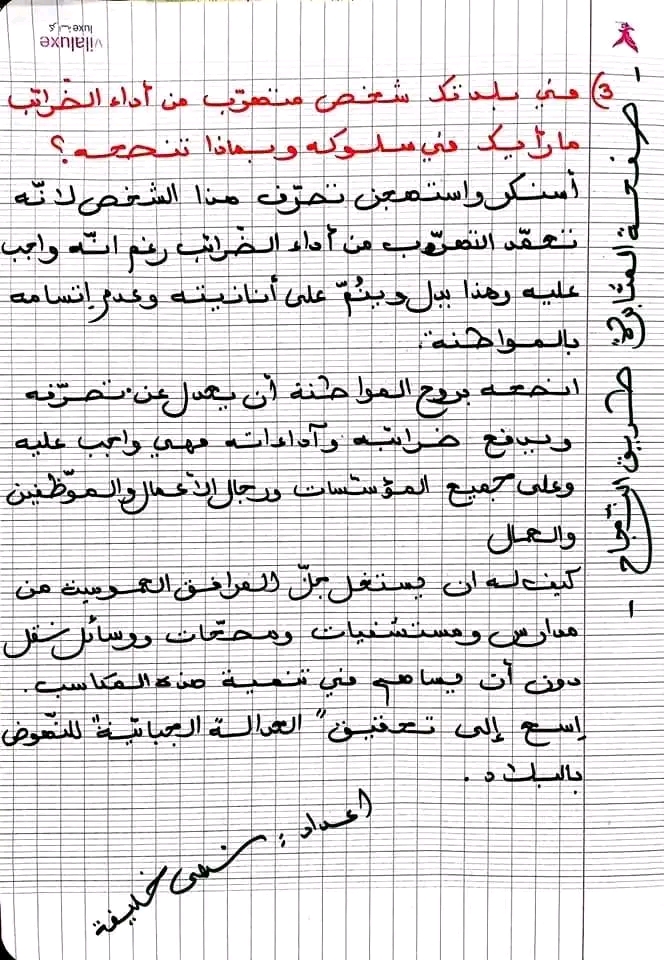 vilaluxe
3) في بلدتك شخص متهرّب من أداء الضّرائب
ما رأيك في سلوكه وبماذا تنصحه؟
أستنكر واستهجن تصرّف هذا الشخص لانّه
تعمّد التهرّب من أداء الضّرائب رغم انّه واجب
عليه وهذا يدل وينمّ على أنانيته وعدم إتسامه
بالمواطنة.
انصحه بروح المواطنة أن يعدل عن تصرّفه
ويدفع ضرائبه وآداءاته فهي واجب عليه
وعلى جميع المؤسّسات ورجال الأعمال والموّظفين
والعمال
كيف له ان يستغل جلّ المرافق العمومية من
مدارس ومستشفيات ومحطّات ووسائل نقل
دون أن يساهم في تنمية هذه المكاسب.
إسع إلى تحقيق "العدالة الجبائيّة" للنّهوض
بالبلاد.
اعداد: خليفة
- صفحة المثابرة طريق النّجاح -